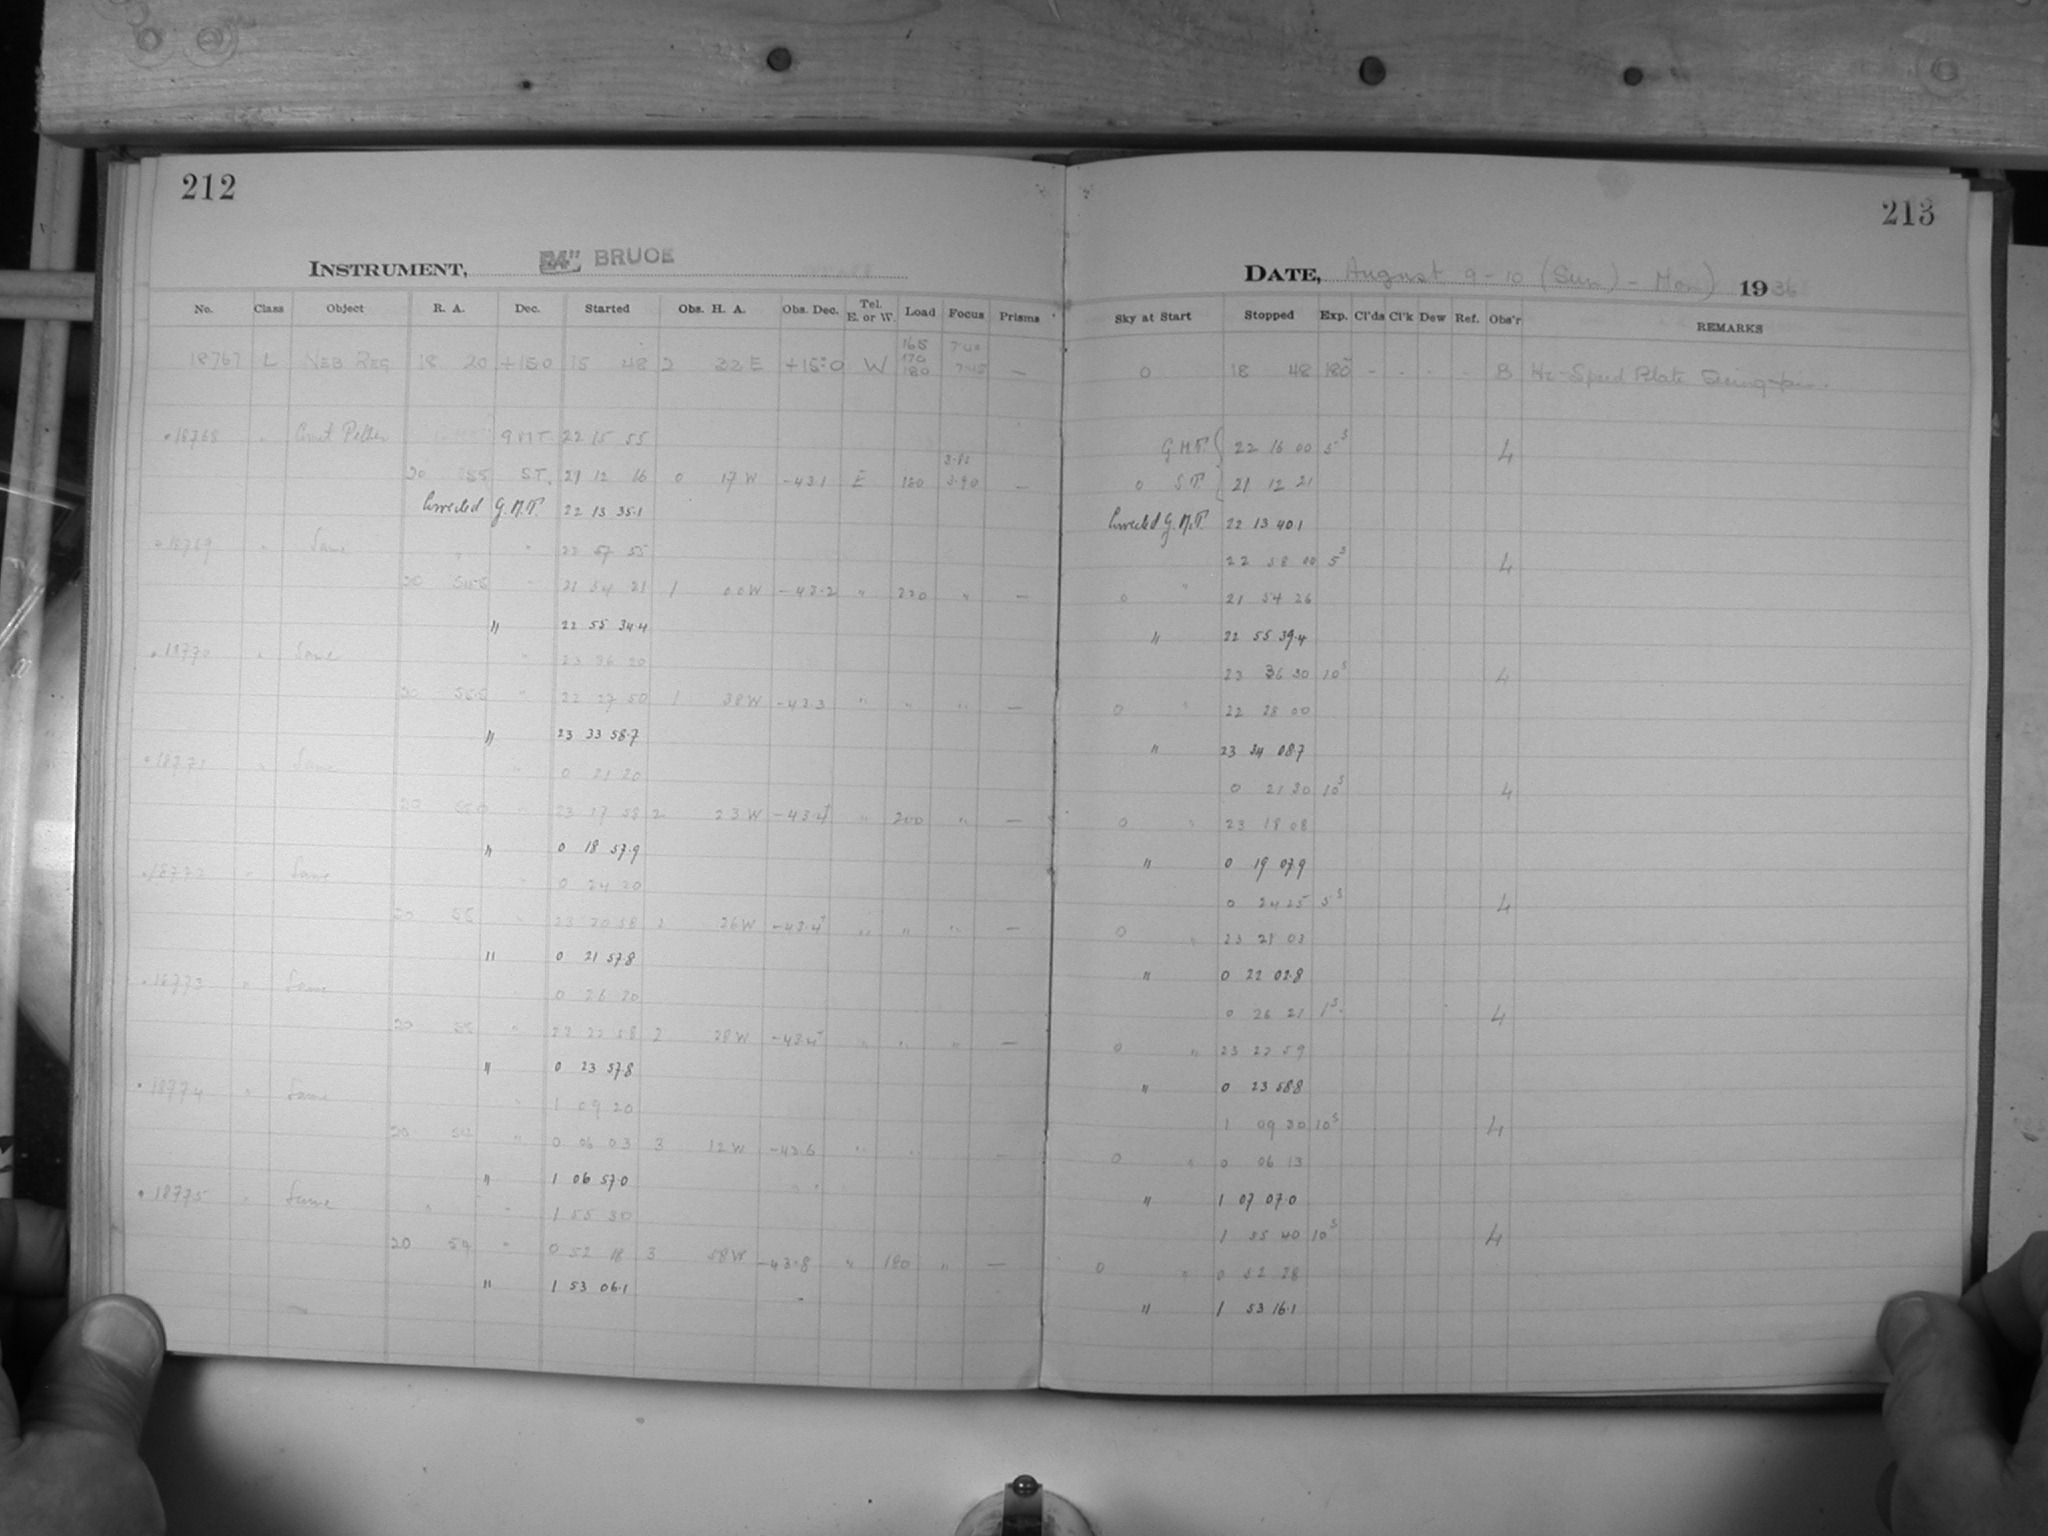 212
213
INSTRUMENT, 24" BRUCE
DATE, August 9-10 (Sun) - Mon) 1936
No. Class Object R. A. Dec. Started Obs. H. A. Obs. Dec. Tel. E. or W. Load Focus Prisms
Sky at Start Stopped Exp. Cl'ds Cl'k Dew Ref. Obs'r REMARKS
165
170
18767 L NEB REG 18 20 +15.0 15 48 2 32 E +15.0 W 180 — 0 18 48 180 - - - - B Hi-Speed Plate
18768 " Comet G M T 22 15 55 G.M.T. 22 16 00 5s 4
20 55 S.T. 21 12 16 0 17 W -43.1 E 180 3.90 — 0 S.T. 21 12 21
Corrected G.M.T. 22 13 35.1 Corrected G.M.T. 22 13 40.1
18769 " Same " " 22 57 55 22 58 00 5s 4
20 " 21 54 21 1 00 W -43.2 " 220 " — 0 " 21 54 26
" 22 55 34.4 " 22 55 39.4
18770 " Same " 23 36 20 23 36 30 10s 4
20 55.5 " 22 27 50 1 38 W -43.3 " " " — 0 " 22 28 00
" 23 33 58.7 " 23 34 08.7
18771 " Same " 0 21 20 0 21 30 10s 4
20 55.0 " 23 17 58 2 23 W -43.4 " 200 " — 0 " 23 18 08
" 0 18 57.9 " 0 19 07.9
18772 " Same " 0 24 20 0 24 25 5s 4
20 55 " 23 20 58 2 26 W -43.4 " " " — 0 " 23 21 03
" 0 21 57.8 " 0 22 02.8
18773 " Same " 0 26 20 0 26 21 1s. 4
20 55 " 23 22 58 2 28 W -43.4 " " " — 0 " 23 22 59
" 0 23 57.8 " 0 23 58.8
18774 " Same " 1 09 20 1 09 30 10s 4
20 " 0 06 03 3 12 W -43.6 " " — 0 " 0 06 13
" 1 06 57.0 " 1 07 07.0
18775 " Same " " 1 55 30 1 55 40 10s 4
20 54 " 0 52 18 3 58 W -43.8 " 180 " — 0 " 0 52 28
" 1 53 06.1 " 1 53 16.1